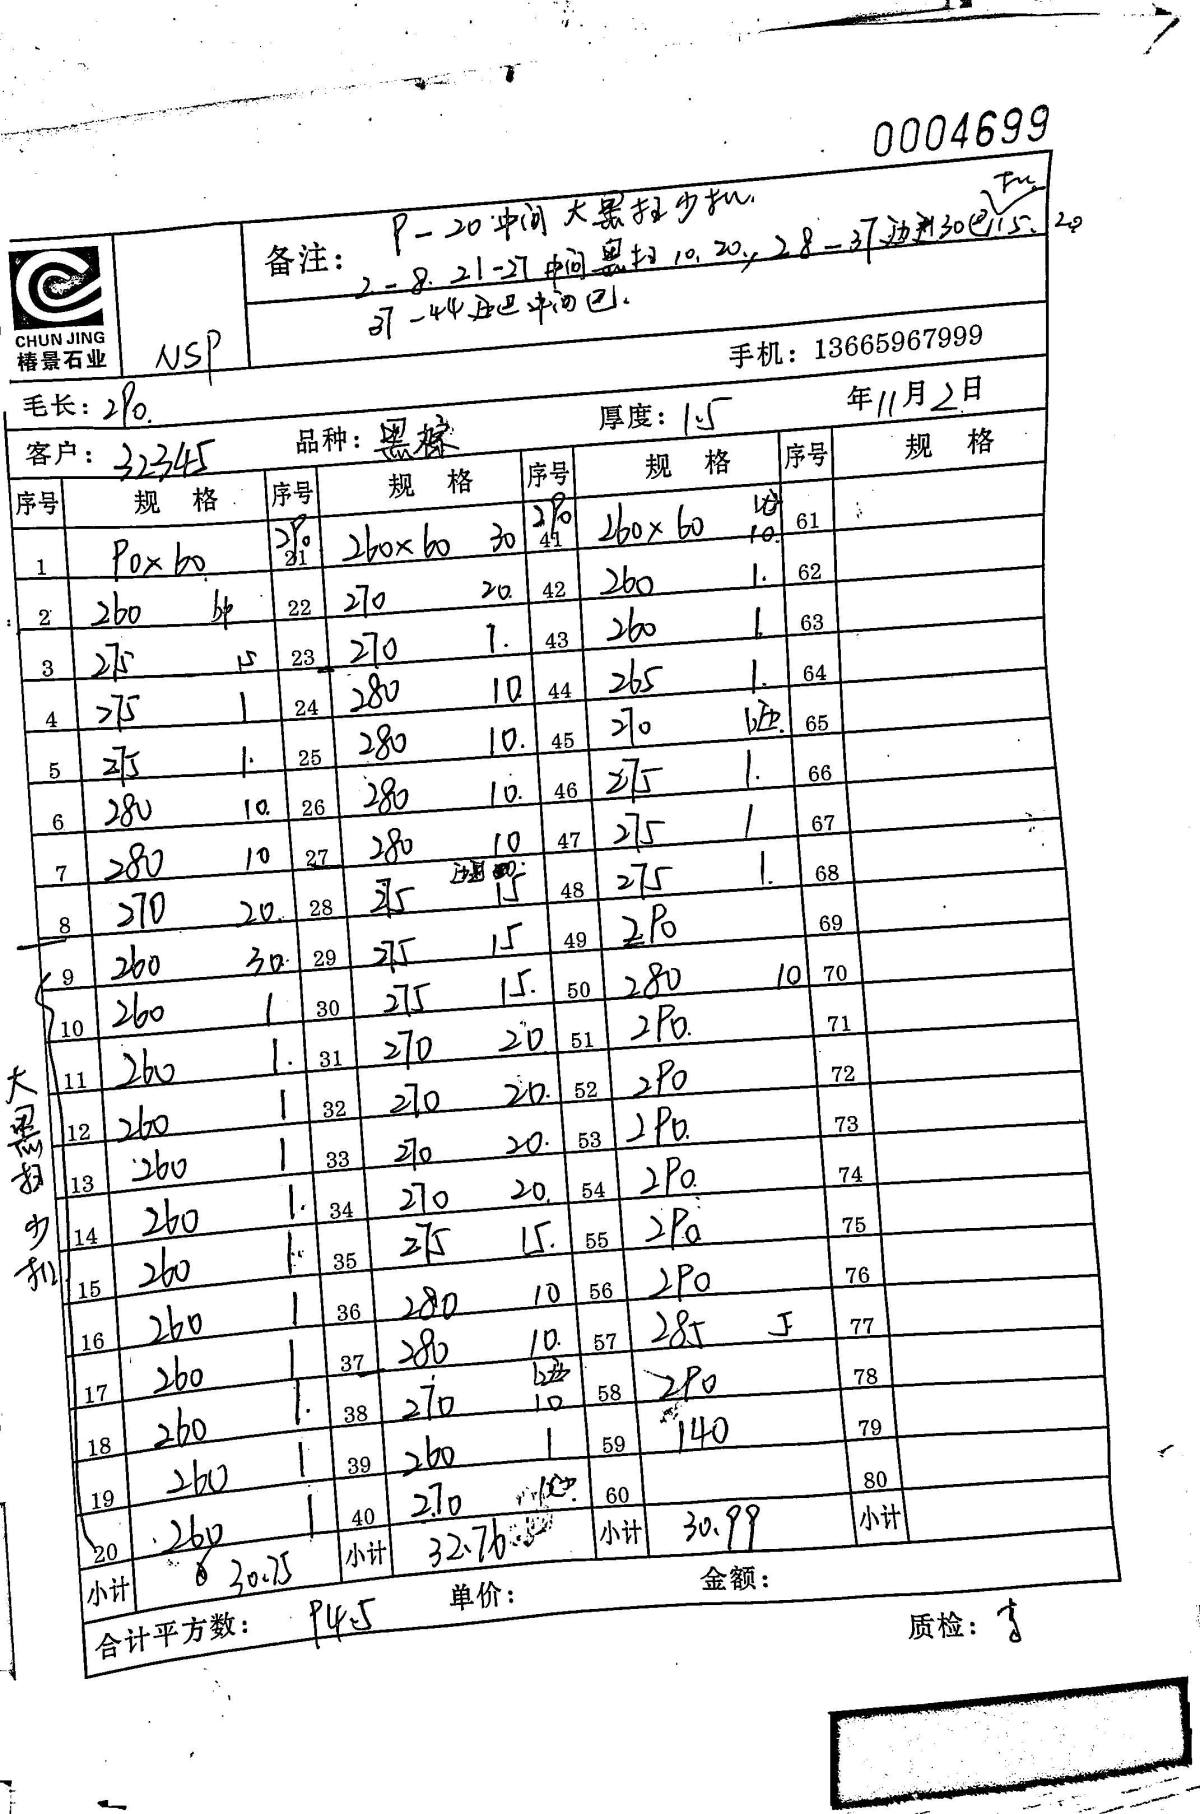 0004699
CHUN JING
椿景石业
NSP
备注: 9-20中间大黑
2-8.21-27中间黑 10.20., 28-37边 30 15.20
37-44 中间
手机: 13665967999
毛长: 290.
厚度: 1.5
年11月2日
客户: 32345
品种: 黑
序号 规格 序号 规格 序号 规格 序号 规格
1 90×60 290 21 260×60 30 290 41 260×60 10. 61
2 260 22 270 20. 42 260 1. 62
3 275 15 23 270 1. 43 260 1 63
4 275 1 24 280 10 44 265 1. 64
5 275 1. 25 280 10. 45 270 65
6 280 10. 26 280 10. 46 275 1. 66
7 280 10 27 280 10 47 275 1 67
8 270 20. 28 275 15 48 275 1. 68
9 260 30. 29 275 15 49 290 69
10 260 1 30 275 15. 50 280 10 70
11 260 1. 31 270 20 51 290. 71
12 260 1 32 270 20. 52 290 72
13 260 1 33 270 20. 53 290. 73
14 260 1. 34 270 20. 54 290. 74
15 260 1 35 275 15. 55 290 75
16 260 1 36 280 10 56 290 76
17 260 1 37 280 10. 57 285 5 77
18 260 1. 38 270 10 58 290 78
19 260 1 39 260 1 59 140 79
20 260 1 40 270 60 80
小计 30.75 小计 32.76 小计 30.99 小计
合计平方数: 94.5 单价: 金额:
质检:
大黑